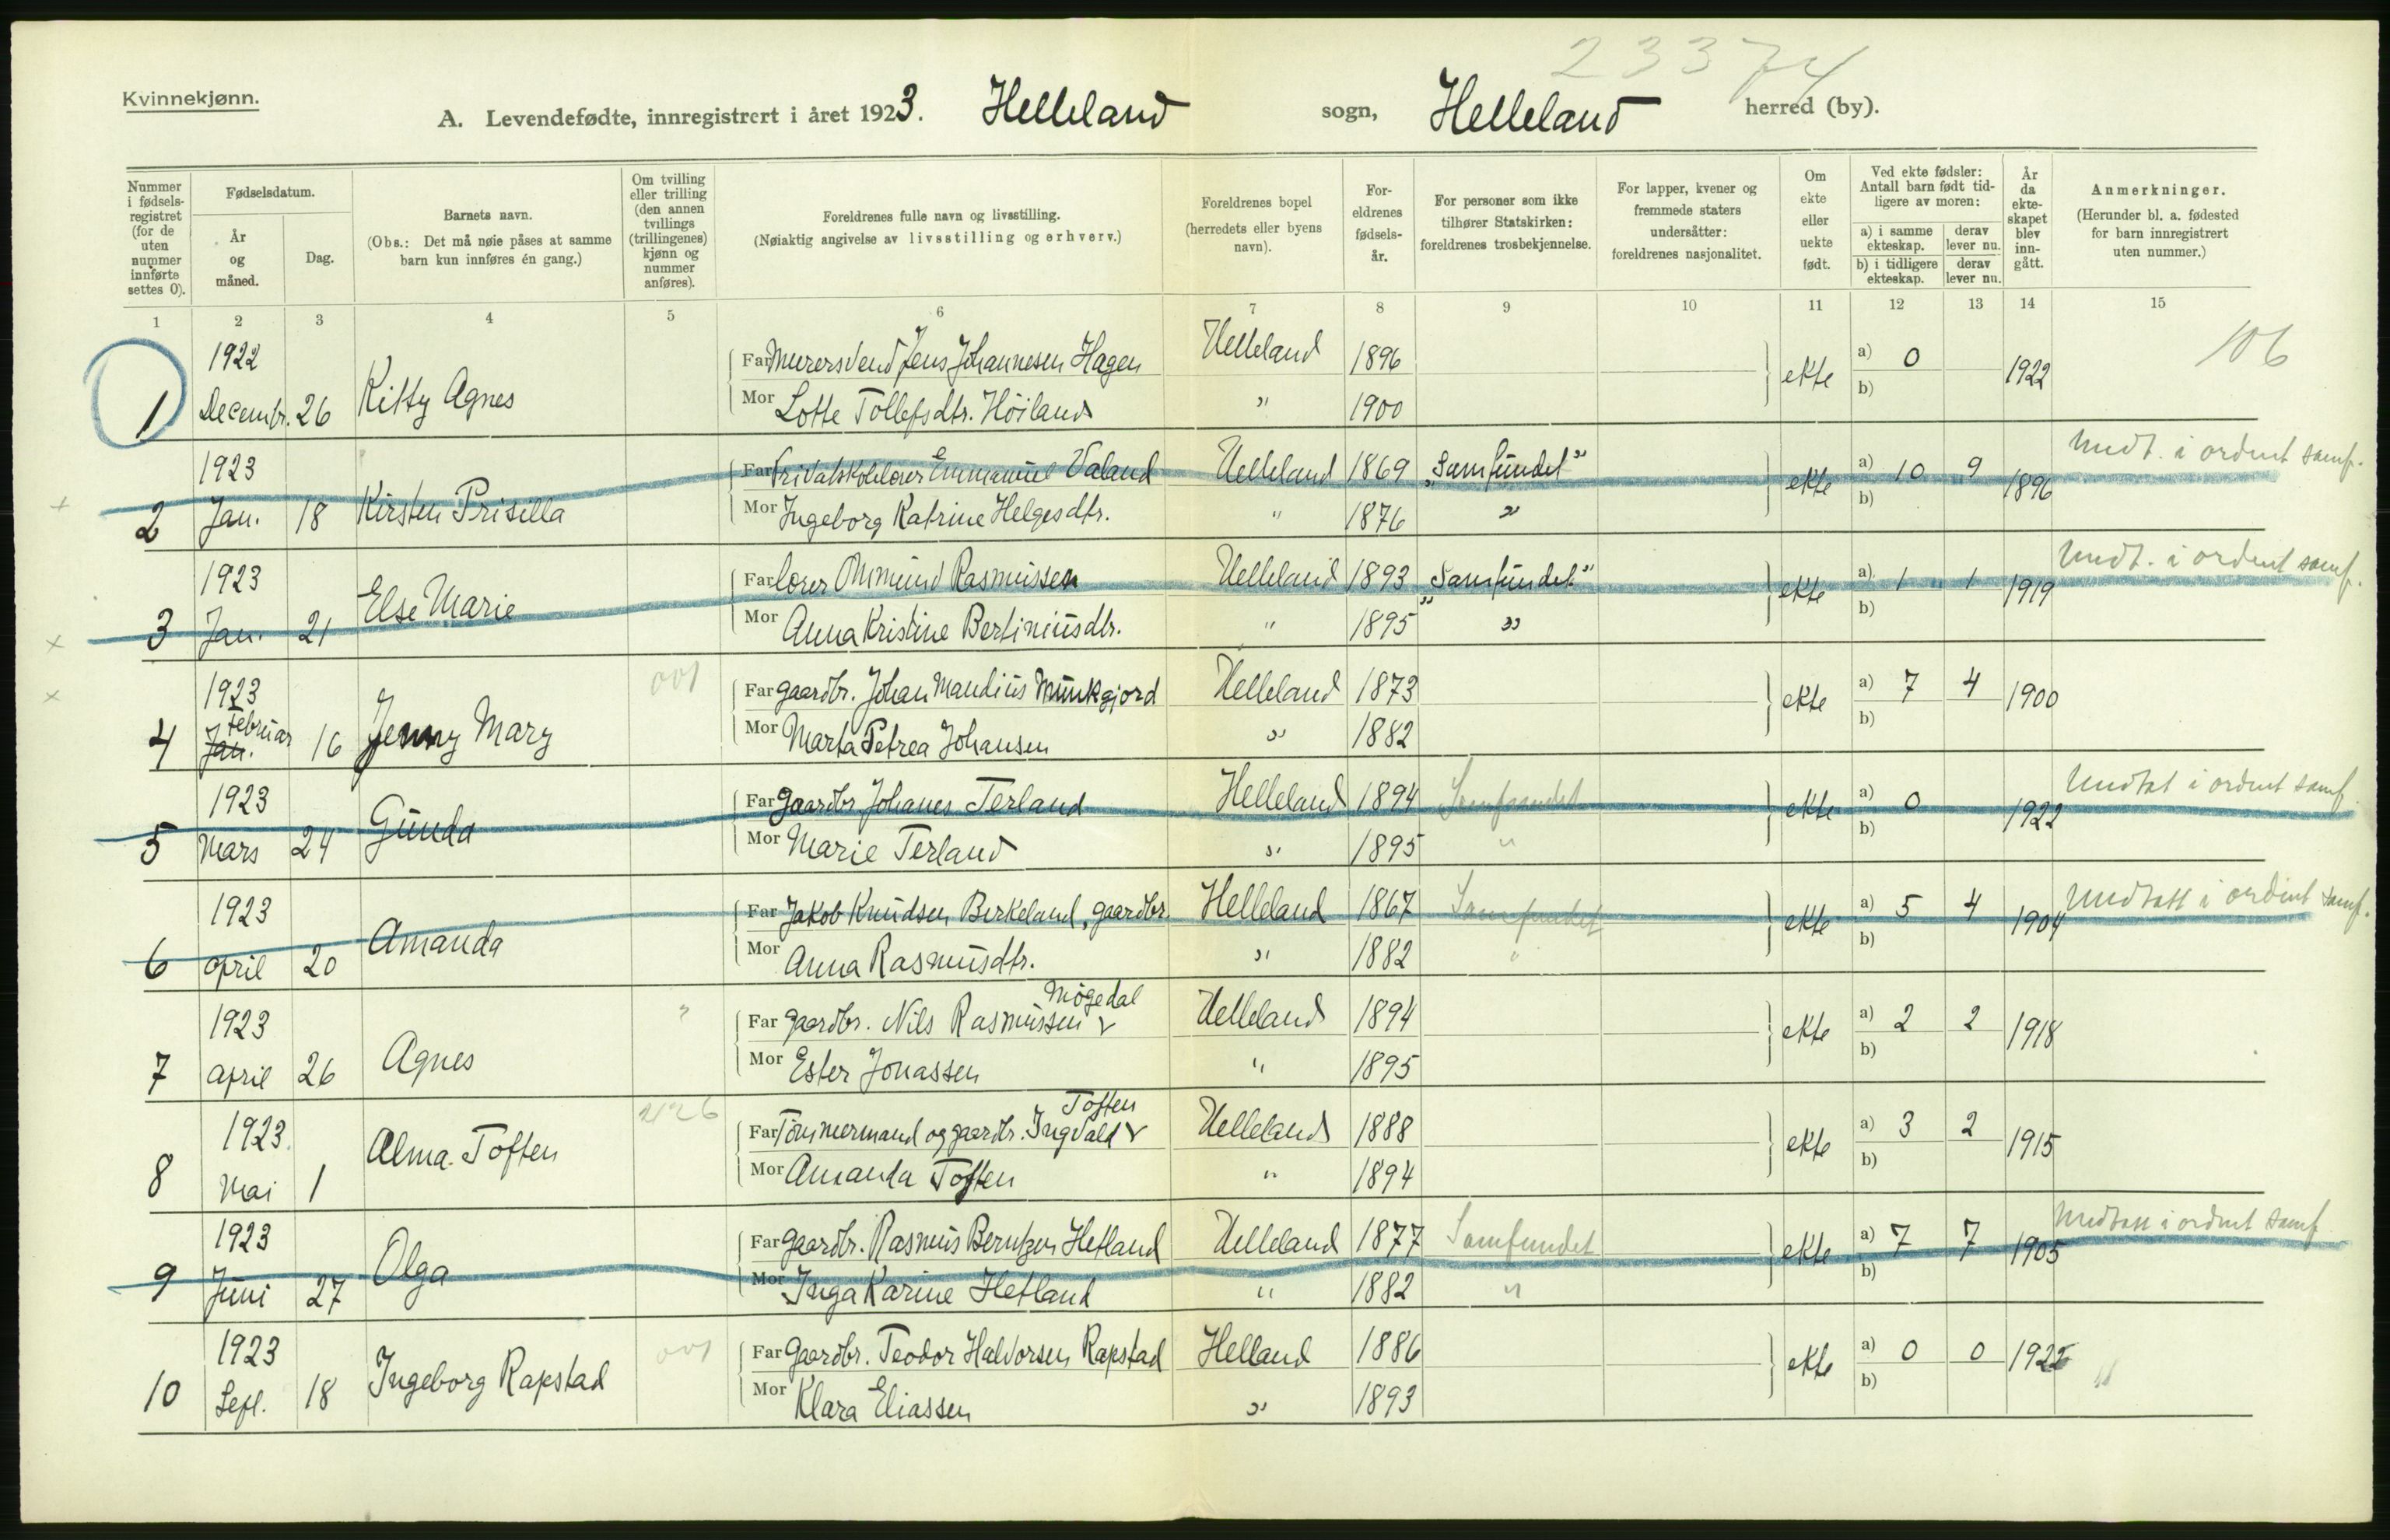 23374
Kvinnekjønn.
A. Levendefødte, innregistrert i året 1923. Helleland sogn, Helleland herred (by).
Nummer i fødsels-registret (for de uten nummer innførte settes 0).
Fødselsdatum.
År og måned.
Dag.
Barnets navn.
(Obs.: Det må nøie påses at samme barn kun innføres én gang.)
Om tvilling eller trilling (den annen tvillings (trillingenes) kjønn og nummer anføres).
Foreldrenes fulle navn og livsstilling.
(Nøiaktig angivelse av livsstilling og erhverv.)
Foreldrenes bopel (herredets eller byens navn).
For-eldrenes fødsels-år.
For personer som ikke tilhører Statskirken: foreldrenes trosbekjennelse.
For lapper, kvener og fremmede staters undersåtter: foreldrenes nasjonalitet.
Om ekte eller uekte født.
Ved ekte fødsler: Antall barn født tid-ligere av moren:
a) i samme ekteskap. derav lever nu.
b) i tidligere ekteskap. derav lever nu.
År da ekte-skapet blev inn-gått.
Anmerkninger.
(Herunder bl. a. fødested for barn innregistrert uten nummer.)
1 2 3 4 5 6 7 8 9 10 11 12 13 14 15
1 1922 Decembr. 26 Kitty Agnes Far Murersvend Jens Johannesen Hagen Helleland 1896 ekte a) 0 b) 1922 106
Mor Lotte Tollefsdtr. Höiland " 1900
2 1923 Jan. 18 Kirsten Prisilla Far Privatskolelærer Emmanuel Valand Helleland 1869 "Samfundet" ekte a) 10 9 b) 1896 Undt. i ordent samf.
Mor Ingeborg Katrine Helgesdtr. " 1876 "
3 1923 Jan. 21 Else Marie Far lærer Ommund Rasmussen Helleland 1893 "Samfundet" ekte a) 1 1 b) 1919 Undt. i ordent samf.
Mor Anna Kristine Bertiniusdtr. " 1895 "
4 1923 Jan. Februar 16 Jenny Mary 001 Far gaardbr. Johan Mandius Munkgjord Helleland 1873 ekte a) 7 4 b) 1900
Mor Marta Petrea Johansen " 1882
5 1923 Mars 24 Gunda Far gaardbr. Johanes Terland Helleland 1894 Samfundet ekte a) 0 b) 1922 Undtat i ordent samf.
Mor Marie Terland " 1895 "
6 1923 april 20 Amanda Far Jakob Knudsen Berkeland, gaardbr. Helleland 1867 Samfundet ekte a) 5 4 b) 1904 Undtatt i ordent samf.
Mor Anna Rasmusdtr. " 1882 "
7 1923 April 26 Agnes " Far gaardbr. Nils Rasmussen Mögedal Helleland 1894 ekte a) 2 2 b) 1918
Mor Ester Jonassen " 1895
8 1923. Mai 1 Alma Toften 2126 Far Tömmermand og gaardbr. Ingvald Toften Helleland 1888 ekte a) 3 2 b) 1915
Mor Amanda Toften " 1894
9 1923 Juni 27 Olga Far gaardbr. Rasmus Berntzen Hetland Helleland 1877 Samfundet ekte a) 7 7 b) 1905 Undtatt i ordent samf
Mor Inga Karine Hetland " 1882 "
10 1923 Sept. 18 Ingeborg Rapstad 001 Far Gaardbr. Teodor Halvorsen Rapstad Helland 1886 ekte a) 0 0 b)
Mor Klara Eliassen " 1893